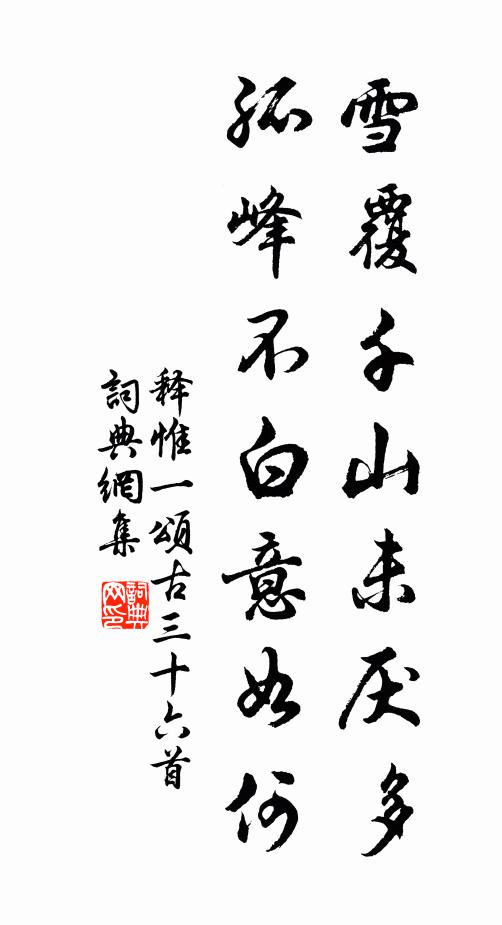 雪覆千山未厌多
孤峰不白意如何
释惟一颂古三十六首
詞典網集
詞典网印